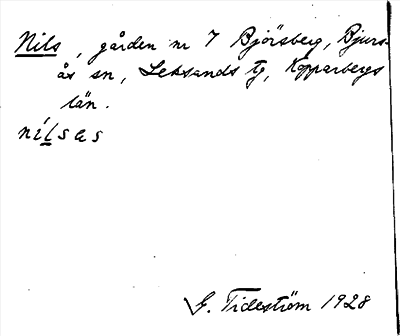 Nils, gården nr 7 Björsberg, Bjurs-
ås sn, Leksands tg, Kopparbergs
län.
nilsas
G. Tideström 1928